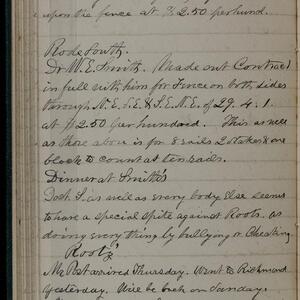 upon the fence at $2.50 per hund.
Rode South.
Dr W.E. Smith. Made out Contract
in full with him for Fence on both sides
through N.E. S.E & S.E. N.E. of 29.4.1.
at $2.50 per hundred. This as well
as those above is for 8 rails 2 stakes & one
block to count as ten rails.
Dinner at Smith's
Doct. S. as well as every body Else seems
to have a special spite against Roots. as
doing every thing by bullying or Cheating
Root's
Mr Post arrived Thursday. Went to Richmond
yesterday. Will be back on Sunday.